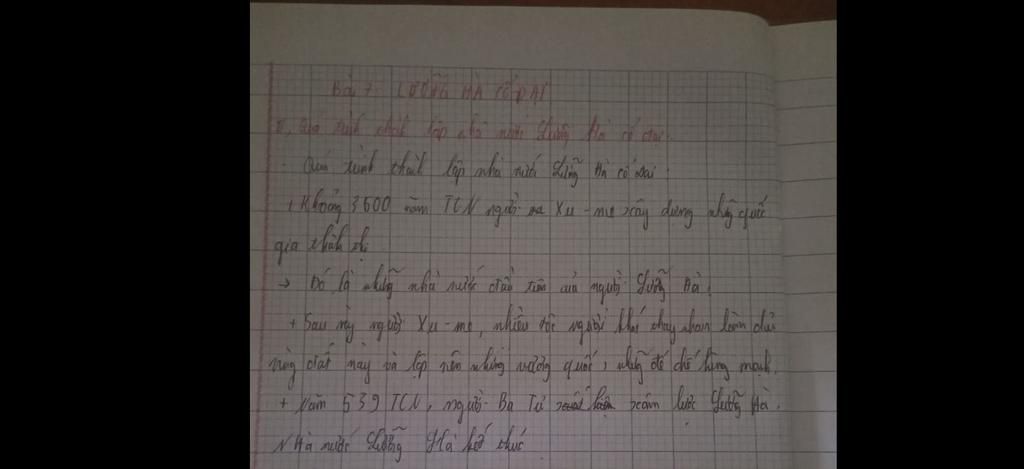 Bài 7: LƯỠNG HÀ CỔ ĐẠI
Quá trình thành lập nhà nước Lưỡng Hà cổ đại.
- Quá trình thành lập nhà nước Lưỡng Hà cổ đại.
+ Khoảng 3500 năm TCN người Xu-me xây dựng những quốc
gia thành thị
→ Đó là những nhà nước đầu tiên của người Lưỡng Hà.
+ Sau này người Xu-me, nhiều tộc người khác thay nhau làm chủ
vùng đất này và lập nên những vương quốc, những đế chế hùng mạnh.
+ Năm 539 TCN, người Ba Tư xâm lược Lưỡng Hà.
Nhà nước Lưỡng Hà kết thúc